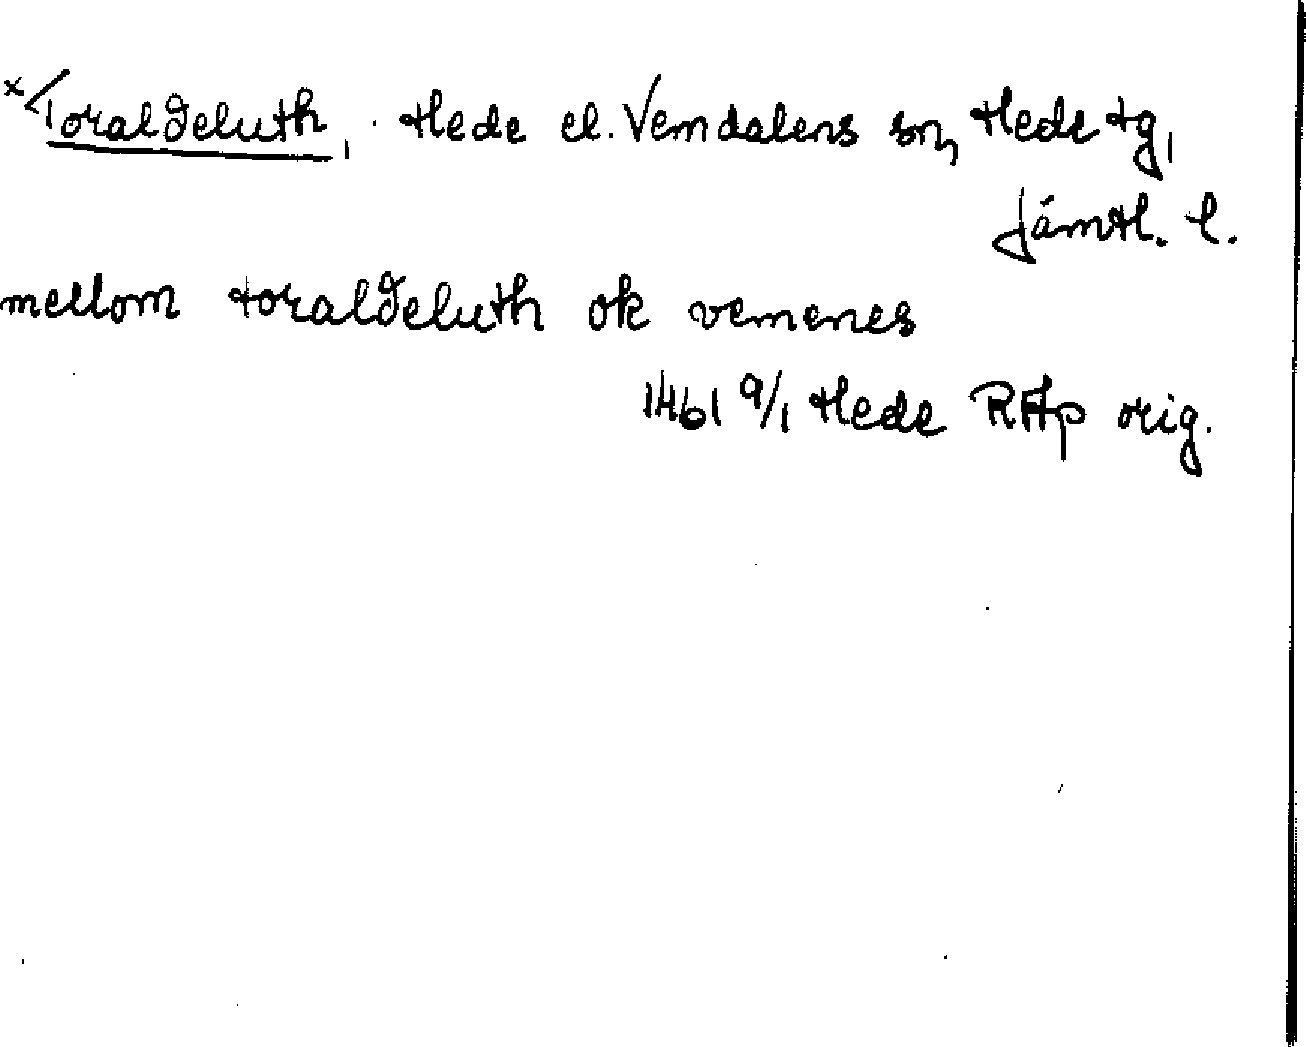 ×Toraldeluth, Hede el. Vemdalens sn, Hede tg,
Jämtl. l.
mellom toraldeluth ok vemenes
1461 9/1 Hede RAp orig.